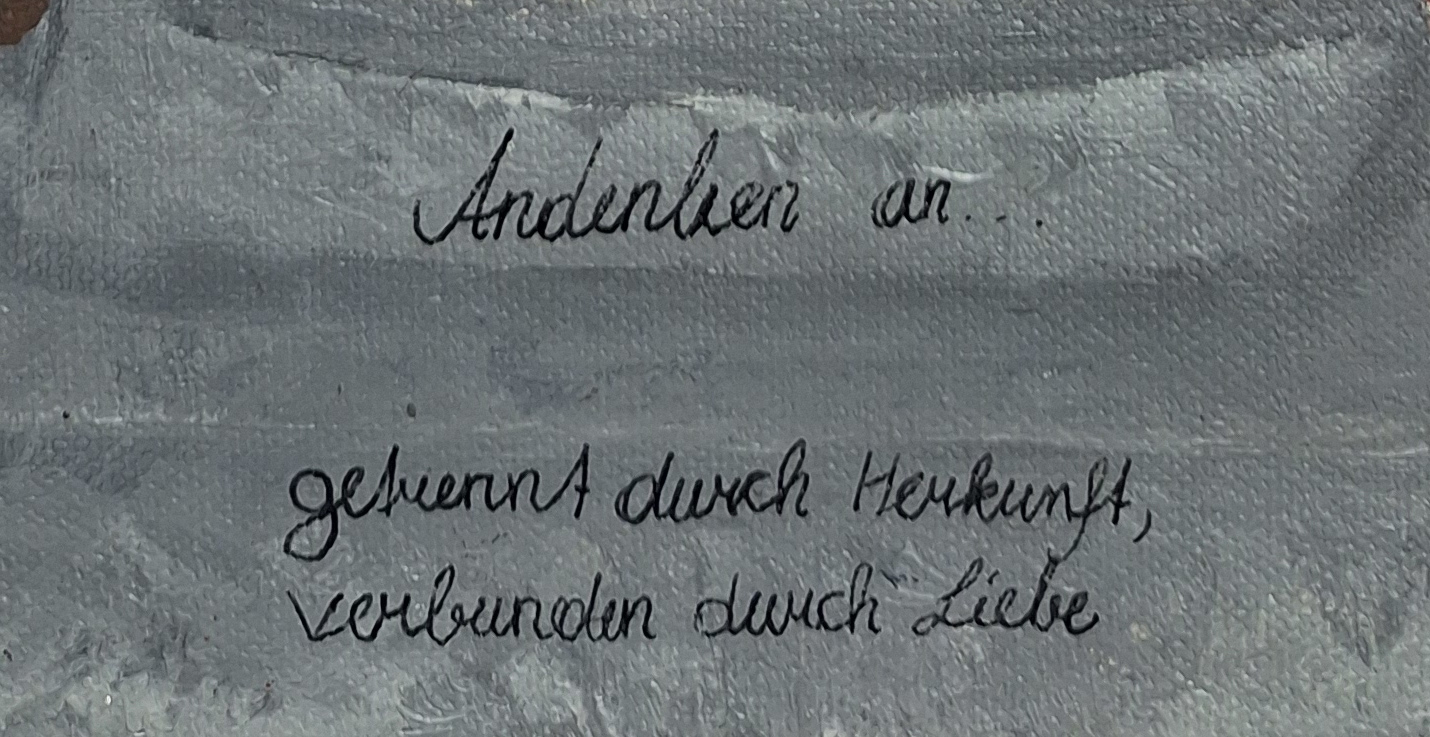 Andenken an...
getrennt durch Herkunft,
verbunden durch Liebe